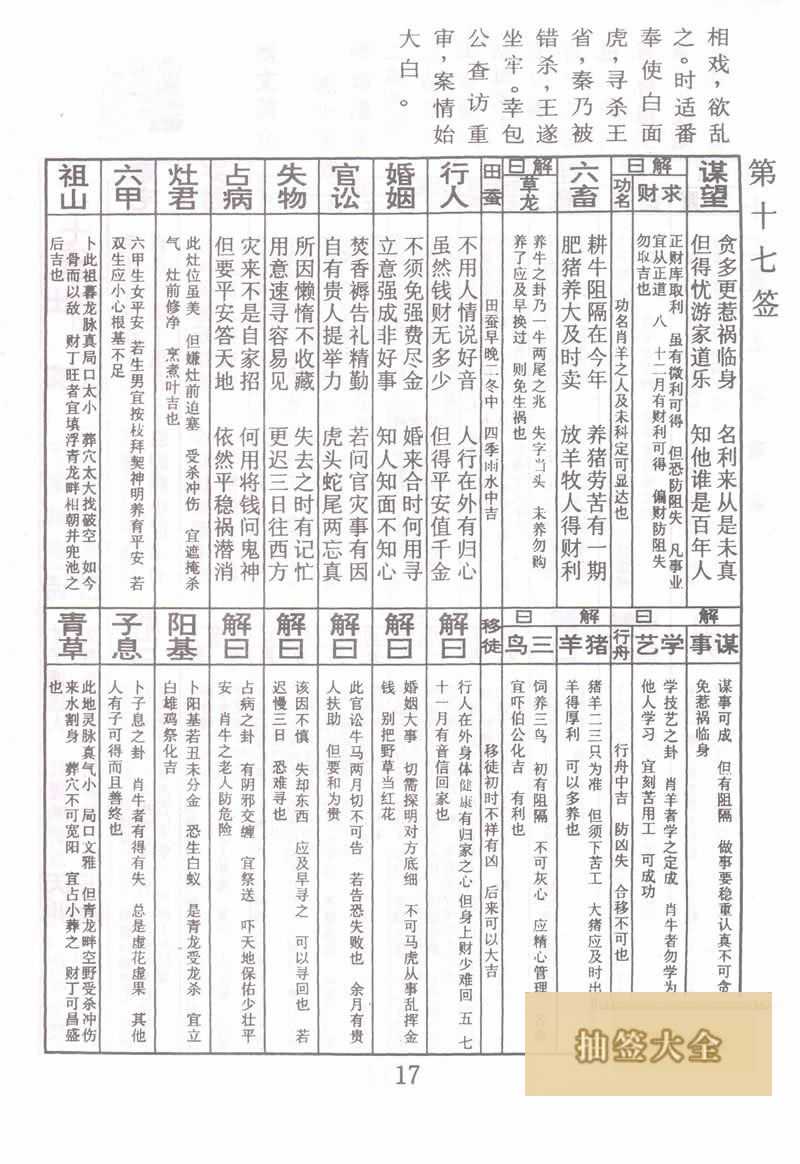 相戏，欲乱
之。时适番
奉使白面
虎，寻杀王
省，秦乃被
错杀，王遂
坐牢。幸包
公查访重
审，案情始
大白。
第十七签
谋望
贪多更惹祸临身 名利来从是未真
但得忧游家道乐 知他谁是百年人
解曰
求财
正财库取利 虽有微利可得 但恐防阻失 凡事业
宜从正道 八 十二月有财利可得 偏财防阻失
勿取吉也
功名
功名肖羊之人及未科定可显达也
六畜
耕牛阻隔在今年 养猪劳苦有一期
肥猪养大及时卖 放羊牧人得财利
解曰
草龙
养牛之卦乃一牛两尾之兆 失字当头 未养勿购
养了应及早换过 则免生祸也
田蚕
田蚕早晚二冬中 四季雨水中吉
行人
不用人情说好音 人行在外有归心
虽然钱财无多少 但得平安值千金
婚姻
不须免强费尽金 婚来合时何用寻
立意强成非好事 知人知面不知心
官讼
焚香褥告礼精勤 若问官灾事有因
自有贵人提举力 虎头蛇尾两忘真
失物
所因懒惰不收藏 失去之时有记忙
用意速寻容易见 更迟三日往西方
占病
灾来不是自家招 何用将钱问鬼神
但要平安答天地 依然平稳祸潜消
灶君
此灶位虽美 但嫌灶前迫塞 受杀冲伤 宜遮掩杀
气 灶前修净 烹煮叶吉也
六甲
六甲生女平安 若生男宜按枝拜契神明养育平安 若
双生应小心根基不足
祖山
卜此祖暮龙脉真局口太小 葬穴太大找破空 如今
骨而以敌 财丁旺者宜填浮青龙畔相朝井兜池之
后吉也
解曰
谋事
谋事可成 但有阻隔 做事要稳重认真不可贪
免惹祸临身
学艺
学技艺之卦 肖羊者学之定成 肖牛者勿学为
他人学习 宜刻苦用工 可成功
行舟
行舟中吉 防凶失 合移不可也
解曰
猪羊
猪羊二三只为准 但须下苦工 大猪应及时出
羊得厚利 可以多养也
三鸟
饲养三鸟 初有阻隔 不可灰心 应精心管理
宜吓伯公化吉 有利也
移徒
移徒初时不祥有凶 后来可以大吉
解曰
行人在外身体健康有归家之心但身上财少难回 五 七
十一月有音信回家也
解曰
婚姻大事 切需探明对方底细 不可马虎从事乱挥金
钱 别把野草当红花
解曰
此官讼牛马两月切不可告 若告恐失败也 余月有贵
人扶助 但要和为贵
解曰
该因不慎 失却东西 应及早寻之 可以寻回也 若
迟慢三日 恐难寻也
解曰
占病之卦 有阴邪交缠 宜祭送 吓天地保佑少壮平
安 肖牛之老人防危险
阳基
卜阳基若丑未分金 恐生白蚁 是青龙受龙杀 宜立
白雄鸡祭化吉
子息
卜子息之卦 肖牛者有得有失 总是虚花虚果 其他
人有子可得而且善终也
青草
此地灵脉真气小 局口文雅 但青龙畔空野受杀冲伤
来水割身 葬穴不可宽阳 宜占小葬之 财丁可昌盛
也
17
抽签大全